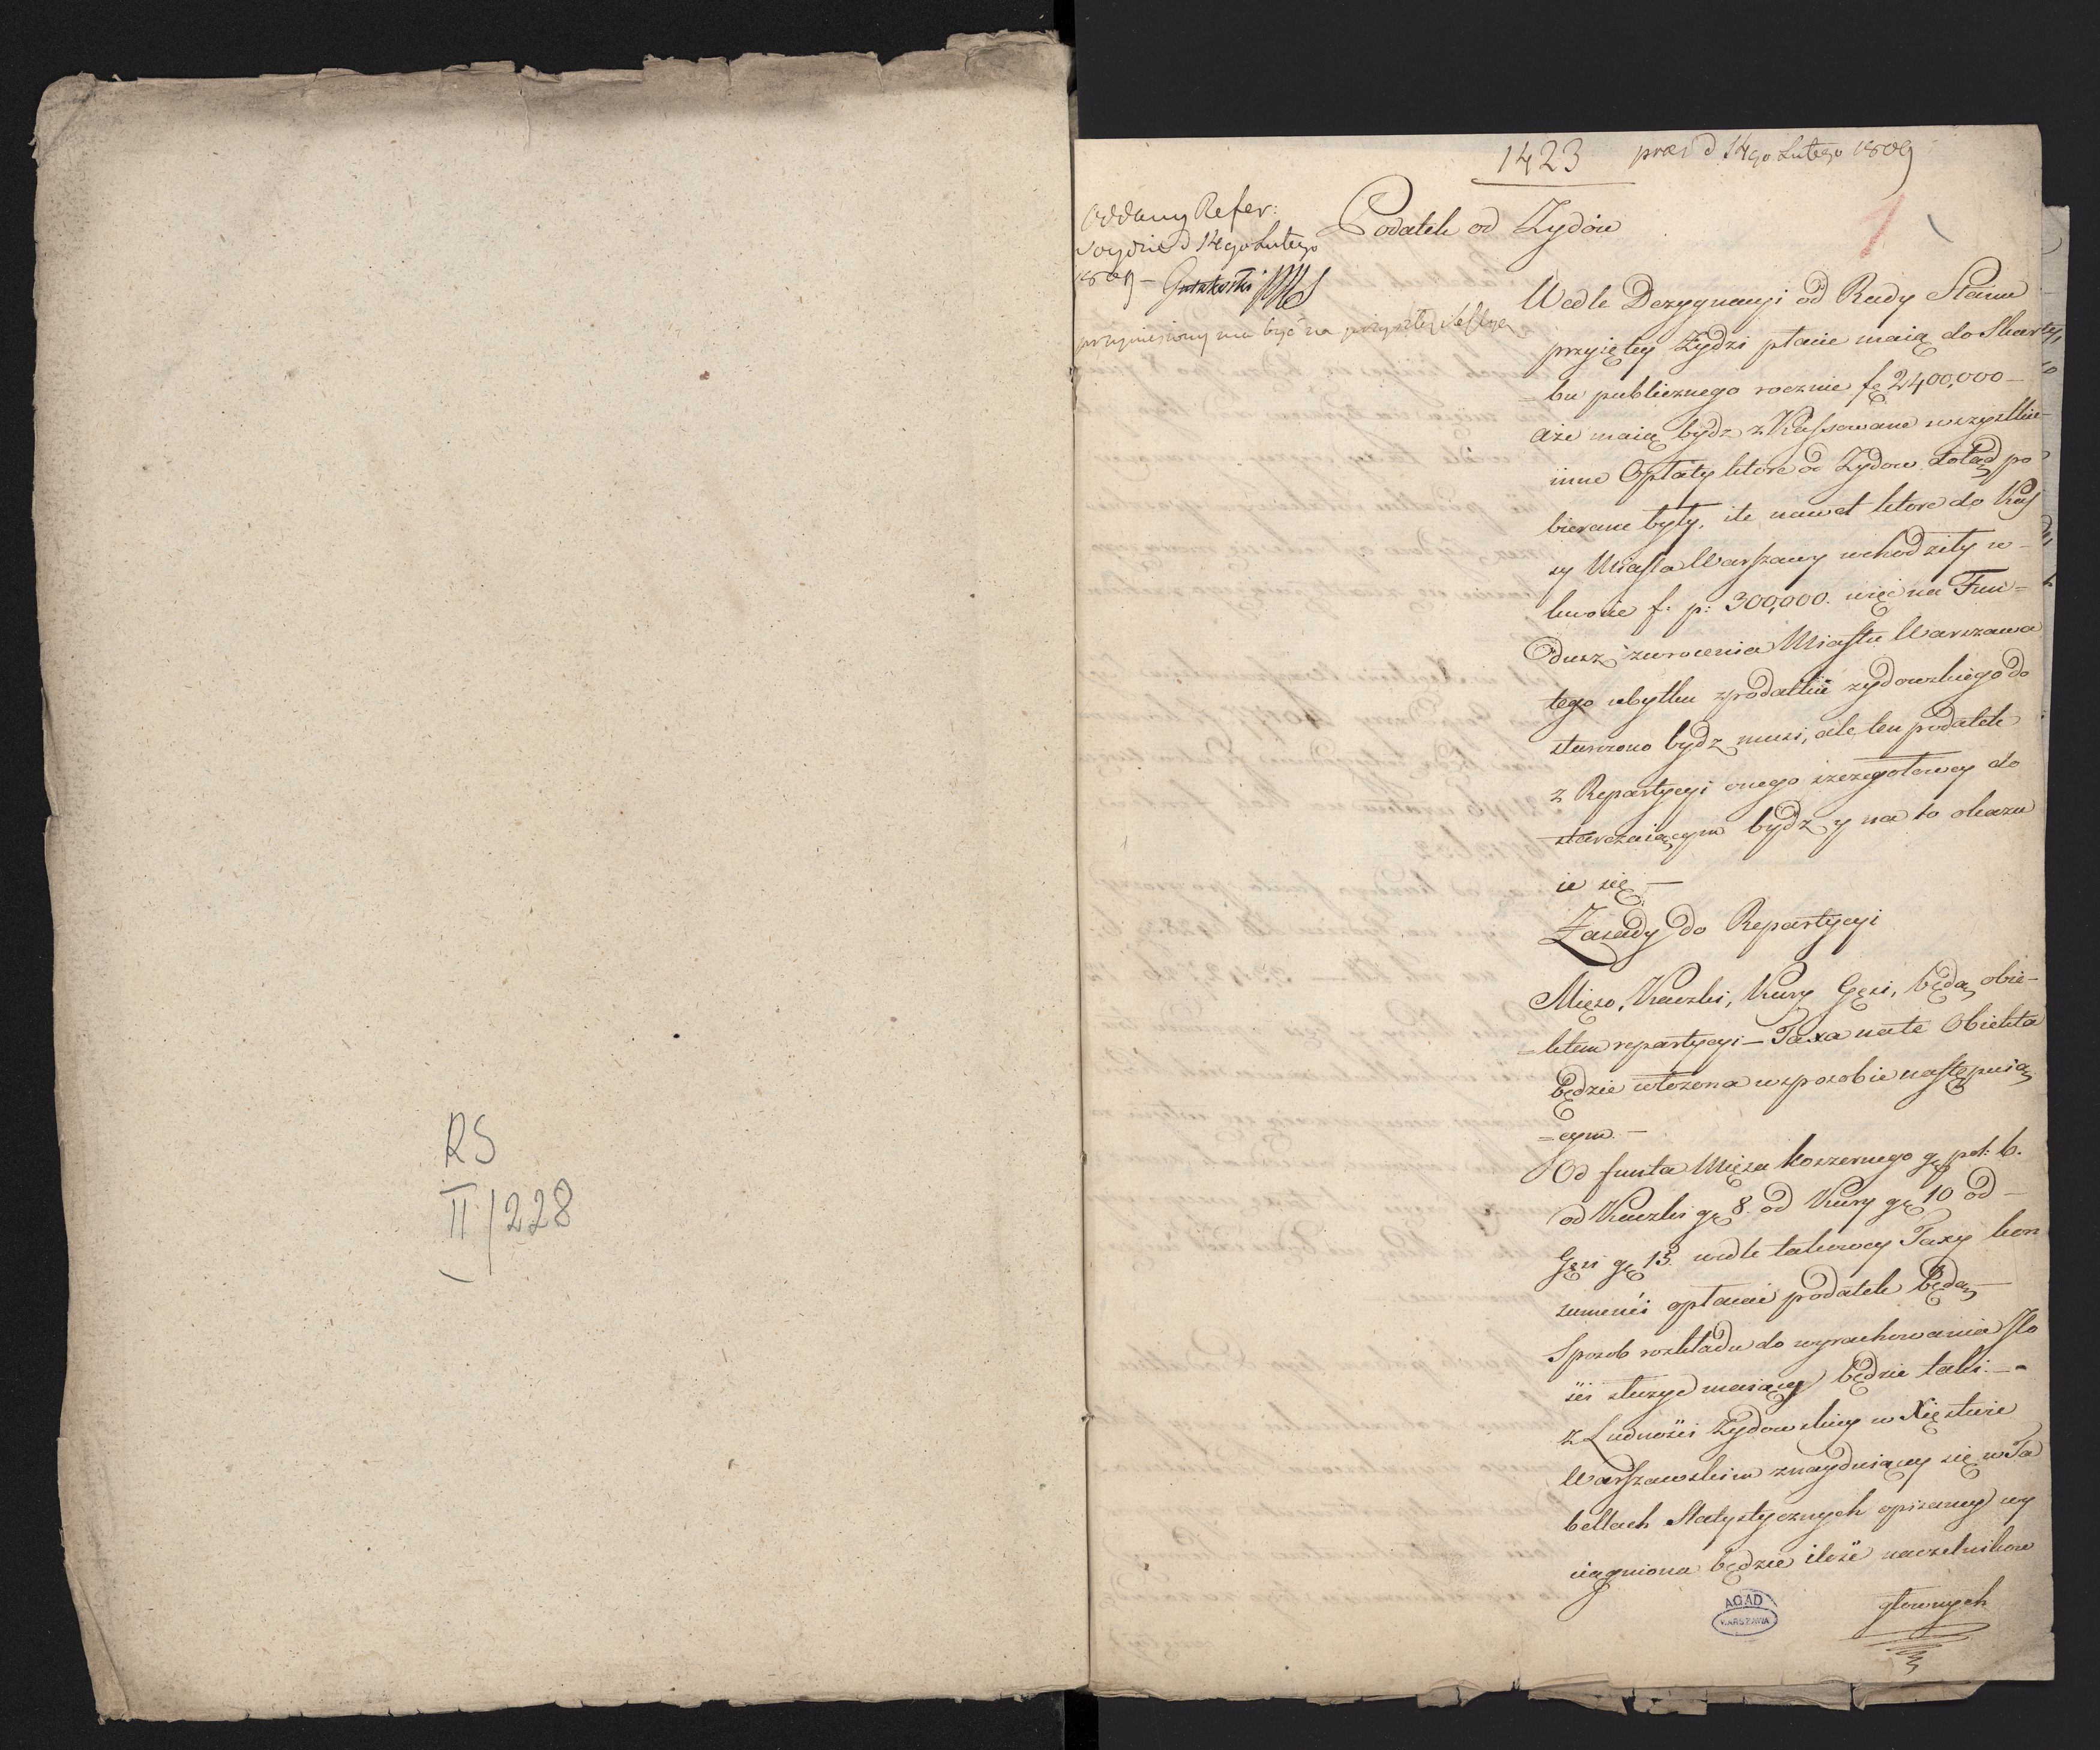 RS
II/228
1423 praes d 14go Lutego 1809
1
Oddany Refer:
d 14go Lutego
1809 –
przyniesiony ma być na
Podatek od Zydów
Wedle Dezygnacyi od Rady Stanu
przyiętey Żydzi płacić maią do Skar
=bu publicznego rocznie fl 2400,000 –
aże maią bydz zKassowane wszystkie
inne Opłaty ktore od Zydow dotąd po
bierane były, ile nawet ktore do Kas
sy Miasta Warszawy wchodziły w
kwocie f: p: 300,000. więc na Fun=
dusz zwrocenia Miastu Warszawa
tego ubytku zpodatku zydowskiego do
starczono bydz musi, ale ten podatek
z Repartycyi onego szczegołowey do
starczaiącym bydz y na to okazu
ie się –
Zasady do Repartycyi
Mięso, Kaczki, Kury Gęsi, będą obie–
=ktem repartycyi – Taxa na te Obiekta
będzie włozona wsposobie następuią
=cym. –
Od funta Mięsa koszernego gr pol: 6.
od Kaczki gr 8. od Kury gr 10 od –
Gęsi gr 15. wedle takowey Taxy kon
sumenci opłacać podatek będą –
Sposob rozkładu do wyrachowania Ilo
ści służyć maiący będzie taki. –
z Ludności Zydowskiey w Xięstwie
Warszawskim znayduiącey się w Ta
bellach Statystycznych opisaney wy
ciągniona będzie ilość naczelnikow
głownych
AGAD
WARSZAWA